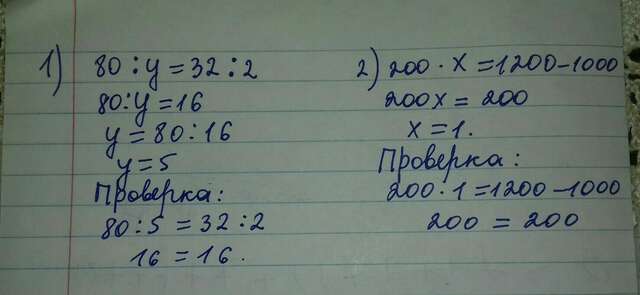 1) 80 : y = 32 : 2
80 : y = 16
y = 80 : 16
y = 5
Проверка:
80 : 5 = 32 : 2
16 = 16.
2) 200 · x = 1200 - 1000
200x = 200
x = 1.
Проверка:
200 · 1 = 1200 - 1000
200 = 200